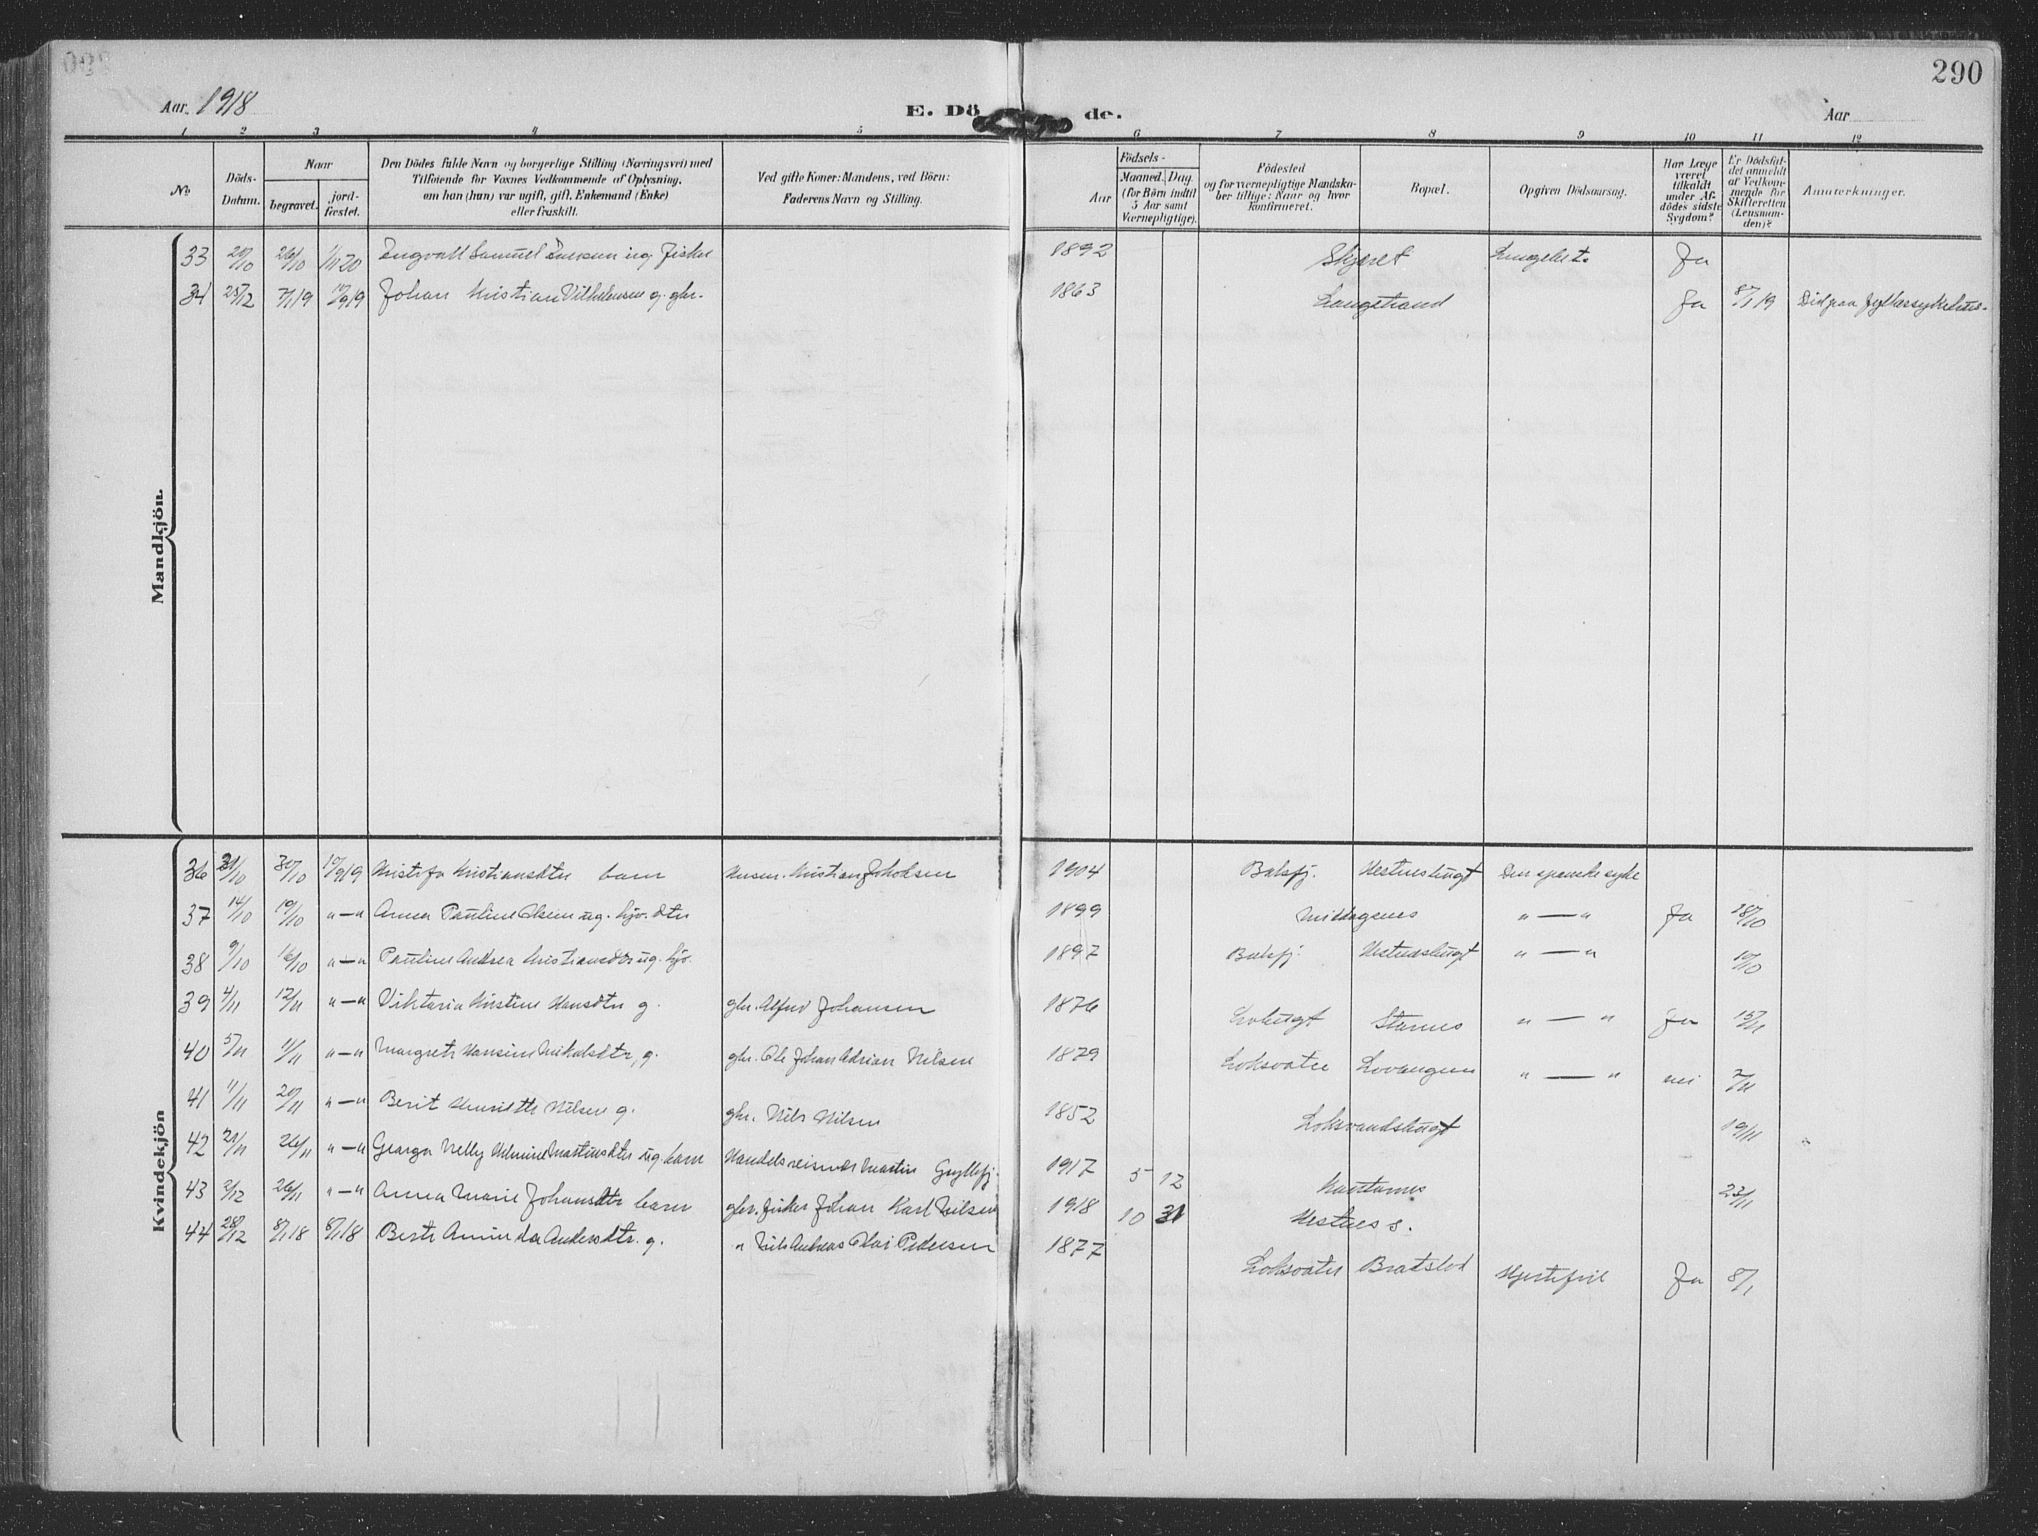 290
Aar. 1918
E. Dö de.
Aar
1 2 3 4 5 6 7 8 9 10 11 12
No
Döds-Datum.
Naar
begravet.
jord-fæstet.
Den Dödes fulde Navn og borgerlige Stilling (Næringsvei) med
Tilföiende for Voxnes Vedkommende af Oplysning,
om han (hun) var ugift, gift, Enkemand (Enke)
eller fraskilt.
Ved gifte Koner: Mandens, ved Börn:
Faderens Navn og Stilling.
Födsels-
Aar
Maaned. Dag.
(for Börn indtil
5 Aar samt
Værnepligtige).
Födested
og for værnepligtige Mandska-
ber tillige: Naar og hvor
konfirmeret.
Bopæl.
Opgiven Dödsaarsag.
Har Læge
været
tilkaldt
under Af-
dödes sidste
Sygdom?
Er Dödsfal-
det anmeldt
af Vedkom-
mende for
Skifteretten
(Lensman-
den)?
Anmerkninger.
Mandkjön.
33 20/10 26/10 1/11 20 Ingvall Samuel ug fisker 1892 Skjæret Lungebet. Ja
34 25/12 7/1 19 19/9 19 Johan Kristian Vilhelmsen g. gbr. 1863 Langstrand Ja 8/1 19 Död paa fylkessykehus.
Kvindekjön
36 21/10 30/10 19/9 19 Kristofa Kristiansdtr barn Kristian Jakobsen 1904 Balsfj. Vestnesbugt Den spanske syke
37 14/10 19/10 "—" Anna Pauline Olsen ug. hjv. dtr 1899 Middagsnes "—" Ja 28/10
38 9/10 16/10 "—" Pauline Andrea Kristiansdtr ug. hjv. 1897 Balsfj. Vestnesbugt "—" 19/10
39 4/11 12/11 "—" Viktoria Kristine Hansdtr g. gbr. Alfred Johansen 1876 Stornes "—" Ja 15/11
40 5/11 11/11 "—" Margrete Hansine Nikolsdtr, g. gbr. Ole Johan Adrian Nilsen 1879 Loksvatn Lavangen "—" nei 7/11
41 11/11 20/11 "—" Berit Henriette Nilsen g. gbr. Nils Nilsen 1852 Loksvandsbugt 19/11
42 21/11 26/11 "—" Georga Nelly Martinsdtr ug. barn Handelsreisende Martin Gryllefj. 1917 5 12 23/11
43 2/12 26/11 "—" Anna Marie Johansdtr barn gbr. fisker Johan Karl Nilsen 1918 10 31 Vestnes s.
44 28/12 8/1 18 8/1 18 Berte Aminda Andersdtr. g. " Nils Andreas Olai Pedersen 1877 Loksvatn Bratslet Hjertefeil Ja 8/1